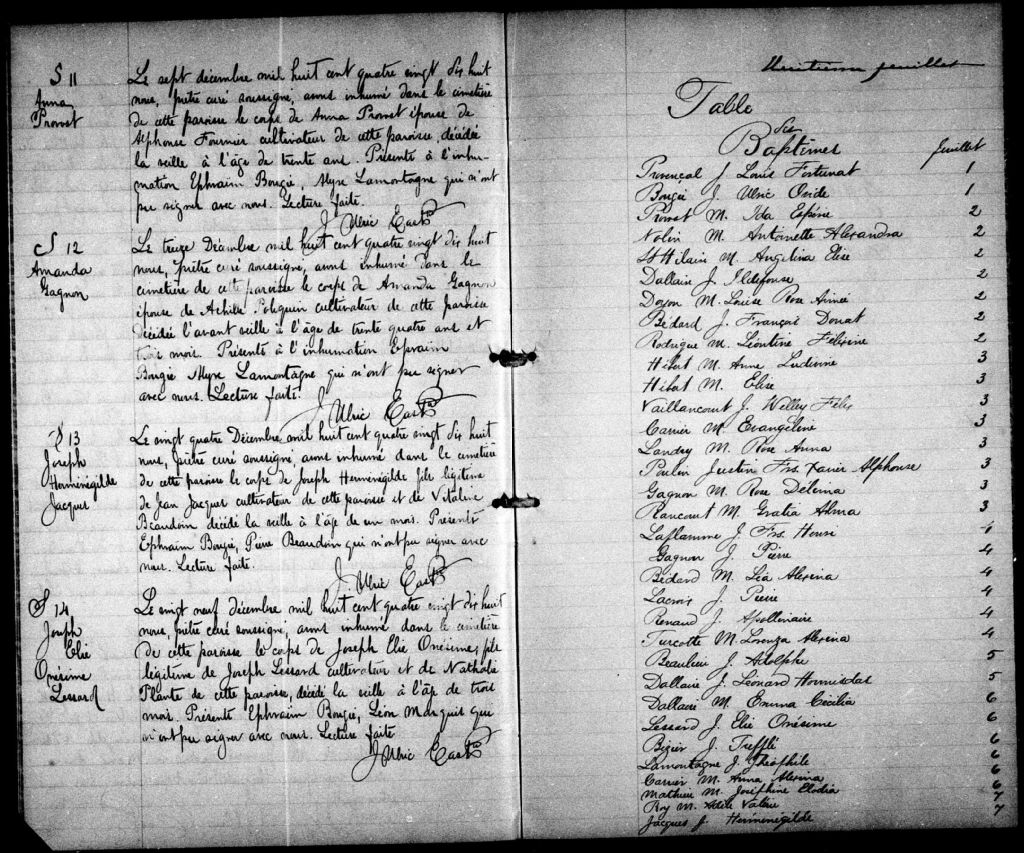 S 11
Anna
Provost
Le sept décembre mil huit cent quatre vingt dix huit
nous, prêtre curé soussigné, avons inhumé dans le cimetière
de cette paroisse le corps de Anna Provost épouse de
Alphonse Fournier cultivateur de cette paroisse, décédée
la veille à l'âge de trente ans. Présents à l'inhu-
mation Ephraim Bougie, Alyre Lamontagne qui n'ont
pu signer avec nous. Lecture faite.
J. Ulric East Ptre
S 12
Amanda
Gagnon
Le treize Décembre mil huit cent quatre vingt dix huit
nous, prêtre curé soussigné, avons inhumé dans le
cimetière de cette paroisse le corps de Amanda Gagnon
épouse de Achille Poliquin cultivateur de cette paroisse
décédée l'avant veille à l'âge de trente quatre ans et
trois mois. Présents à l'inhumation Ephraim
Bougie Alyre Lamontagne qui n'ont pu signer
avec nous. Lecture faite.
J. Ulric East Ptre
S 13
Joseph
Herménégilde
Jacques
Le vingt quatre Décembre mil huit cent quatre vingt dix huit
nous, prêtre curé soussigné, avons inhumé dans le cimetière
de cette paroisse le corps de Joseph Herménégilde fils légitime
de Jean Jacques cultivateur de cette paroisse et de Vitaline
Beaudoin décédé la veille à l'âge de un mois. Présents
Ephraim Bougie, Pierre Beaudoin qui n'ont pu signer avec
nous. Lecture faite.
J. Ulric East Ptre
S 14
Joseph
Elie
Onésime
Lessard
Le vingt neuf décembre mil huit cent quatre vingt dix huit
nous, prêtre curé soussigné, avons inhumé dans le cimetière
de cette paroisse le corps de Joseph Elie Onésime, fils
légitime de Joseph Lessard cultivateur et de Nathalie
Plante de cette paroisse, décédé la veille à l'âge de trois
mois. Présents Ephraim Bougie, Léon Marquis qui
n'ont pu signer avec nous. Lecture faite.
J. Ulric East Ptre
Huitième feuillet
Table
des
Baptêmes feuillet
Provençal J. Louis Fortunat 1
Bougie J. Ulric Ovide 1
Provost M. Ida Exérine 2
Nolin M. Antoinette Alexandra 2
St Hilaire M. Angelina Elise 2
Dallaire J. Ildefonse 2
Doyon M. Louise Rose Aimée 2
Bédard J. François Donat 2
Rodrigue M. Léontine Félixine 2
Hébert M. Anne Ludivine 3
Hébert M. Elise 3
Vaillancourt J. Welley Félix 3
Carrier M. Evangéline 3
Landry M. Rose Anna 3
Poulin Justin Frs. Xavier Alphonse 3
Gagnon M. Rose Délvina 3
Rancourt M. Gratia Alma 3
Laflamme J. Frs. Henri 4
Gagnon J. Pierre 4
Bédard M. Léa Alexina 4
Lacroix J. Pierre 4
Renaud J. Apollinaire 4
Turcotte M. Lorenza Alexina 4
Beaulieu J. Adolphe 5
Dallaire J. Léonard Hormisdas 5
Dallaire M. Emma Cécilia 6
Lessard J. Elie Onésime 6
Bizier J. Trefflé 6
Lamontagne J. Théophile 6
Carrier M. Anna Alexina 6
Mathieu M. Joséphine Elodia 6
Roy M. Adèle Valérie 7
Jacques J. Herménégilde 7